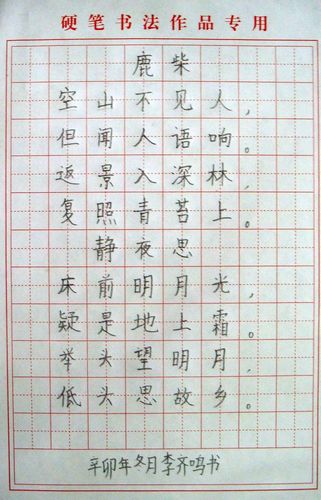 硬笔书法作品专用
鹿柴
空山不见人，
但闻人语响。
返景入深林，
复照青苔上。
静夜思
床前明月光，
疑是地上霜。
举头望明月，
低头思故乡。
辛卯年冬月李齐鸣书